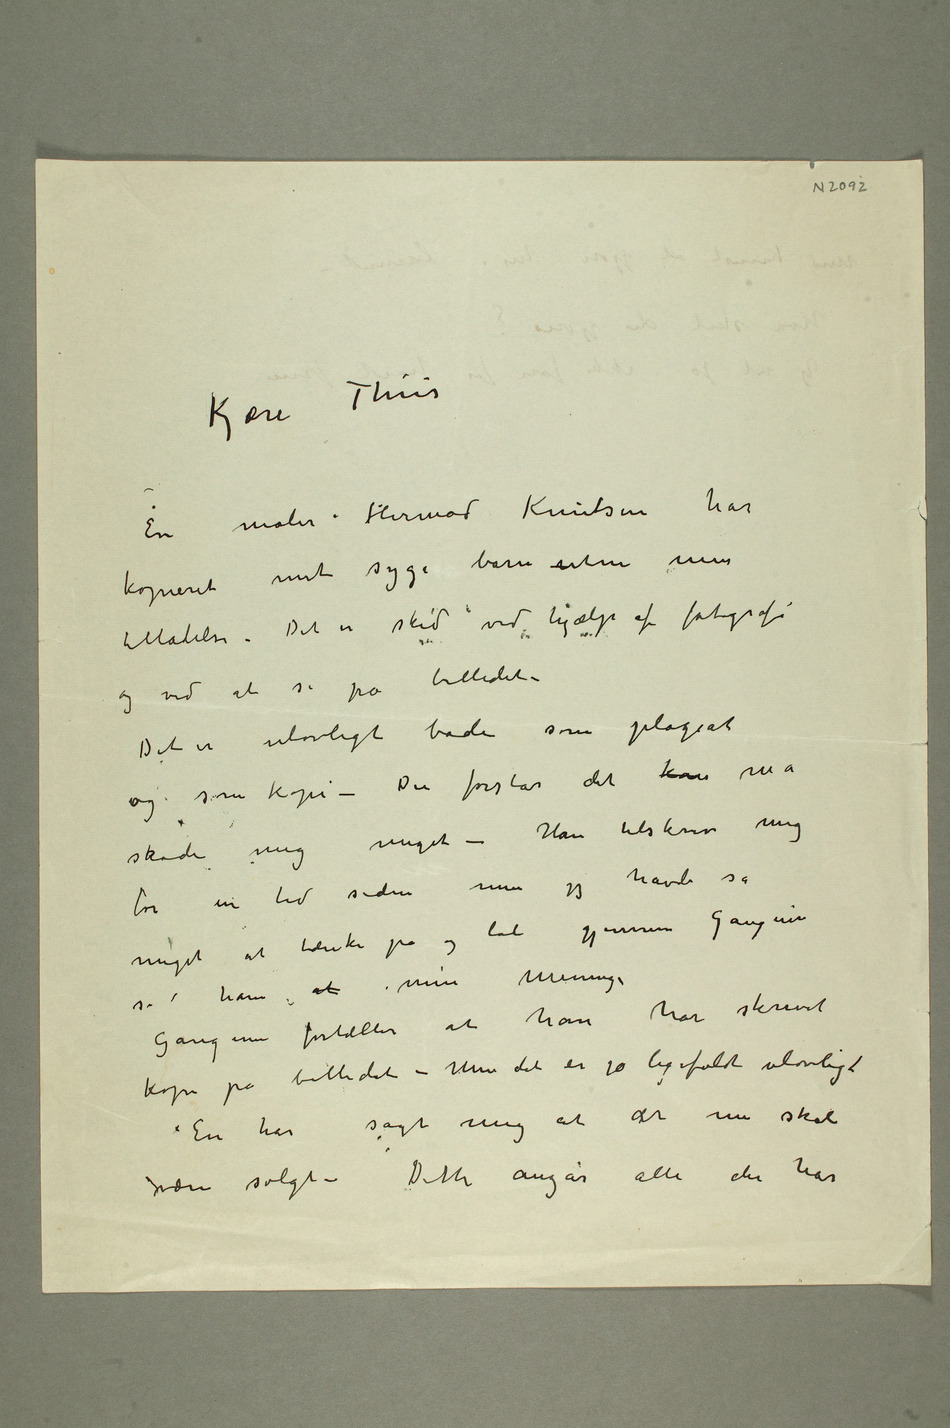 N 2092
Kjære Thiis
En maler Hermod Knutsen har
kopieret mit syge barn uten min
tilladelse. Det er skéd ved hjælp af fotografi
og ved at se på billedet –
Det er ulovligt både som plagiat
og som kopi – Du forstår det kan må
skade mig meget – Han tilskrev mig
for en tid siden men jeg havde så
meget at tænke på og lod gjennem Gauguin
si ham at min mening.
Gauguin fortæller at han har skrevet
kopi på billedet – Men det er jo ligefuldt ulovligt
En har sagt mig at det nu skal
være solgt – Dette angår alle der har